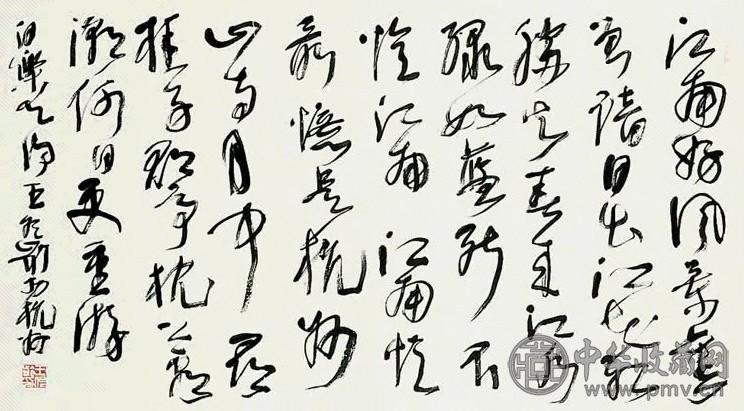 江南好风景舊
曾谙日出江花红
胜火春来江水
绿如蓝能不
忆江南 江南忆
最憶是杭州
山寺月中 寻
桂子郡亭枕上看
潮何日更重游
白乐天词 杭州
中华收藏网
www.pmv.cn